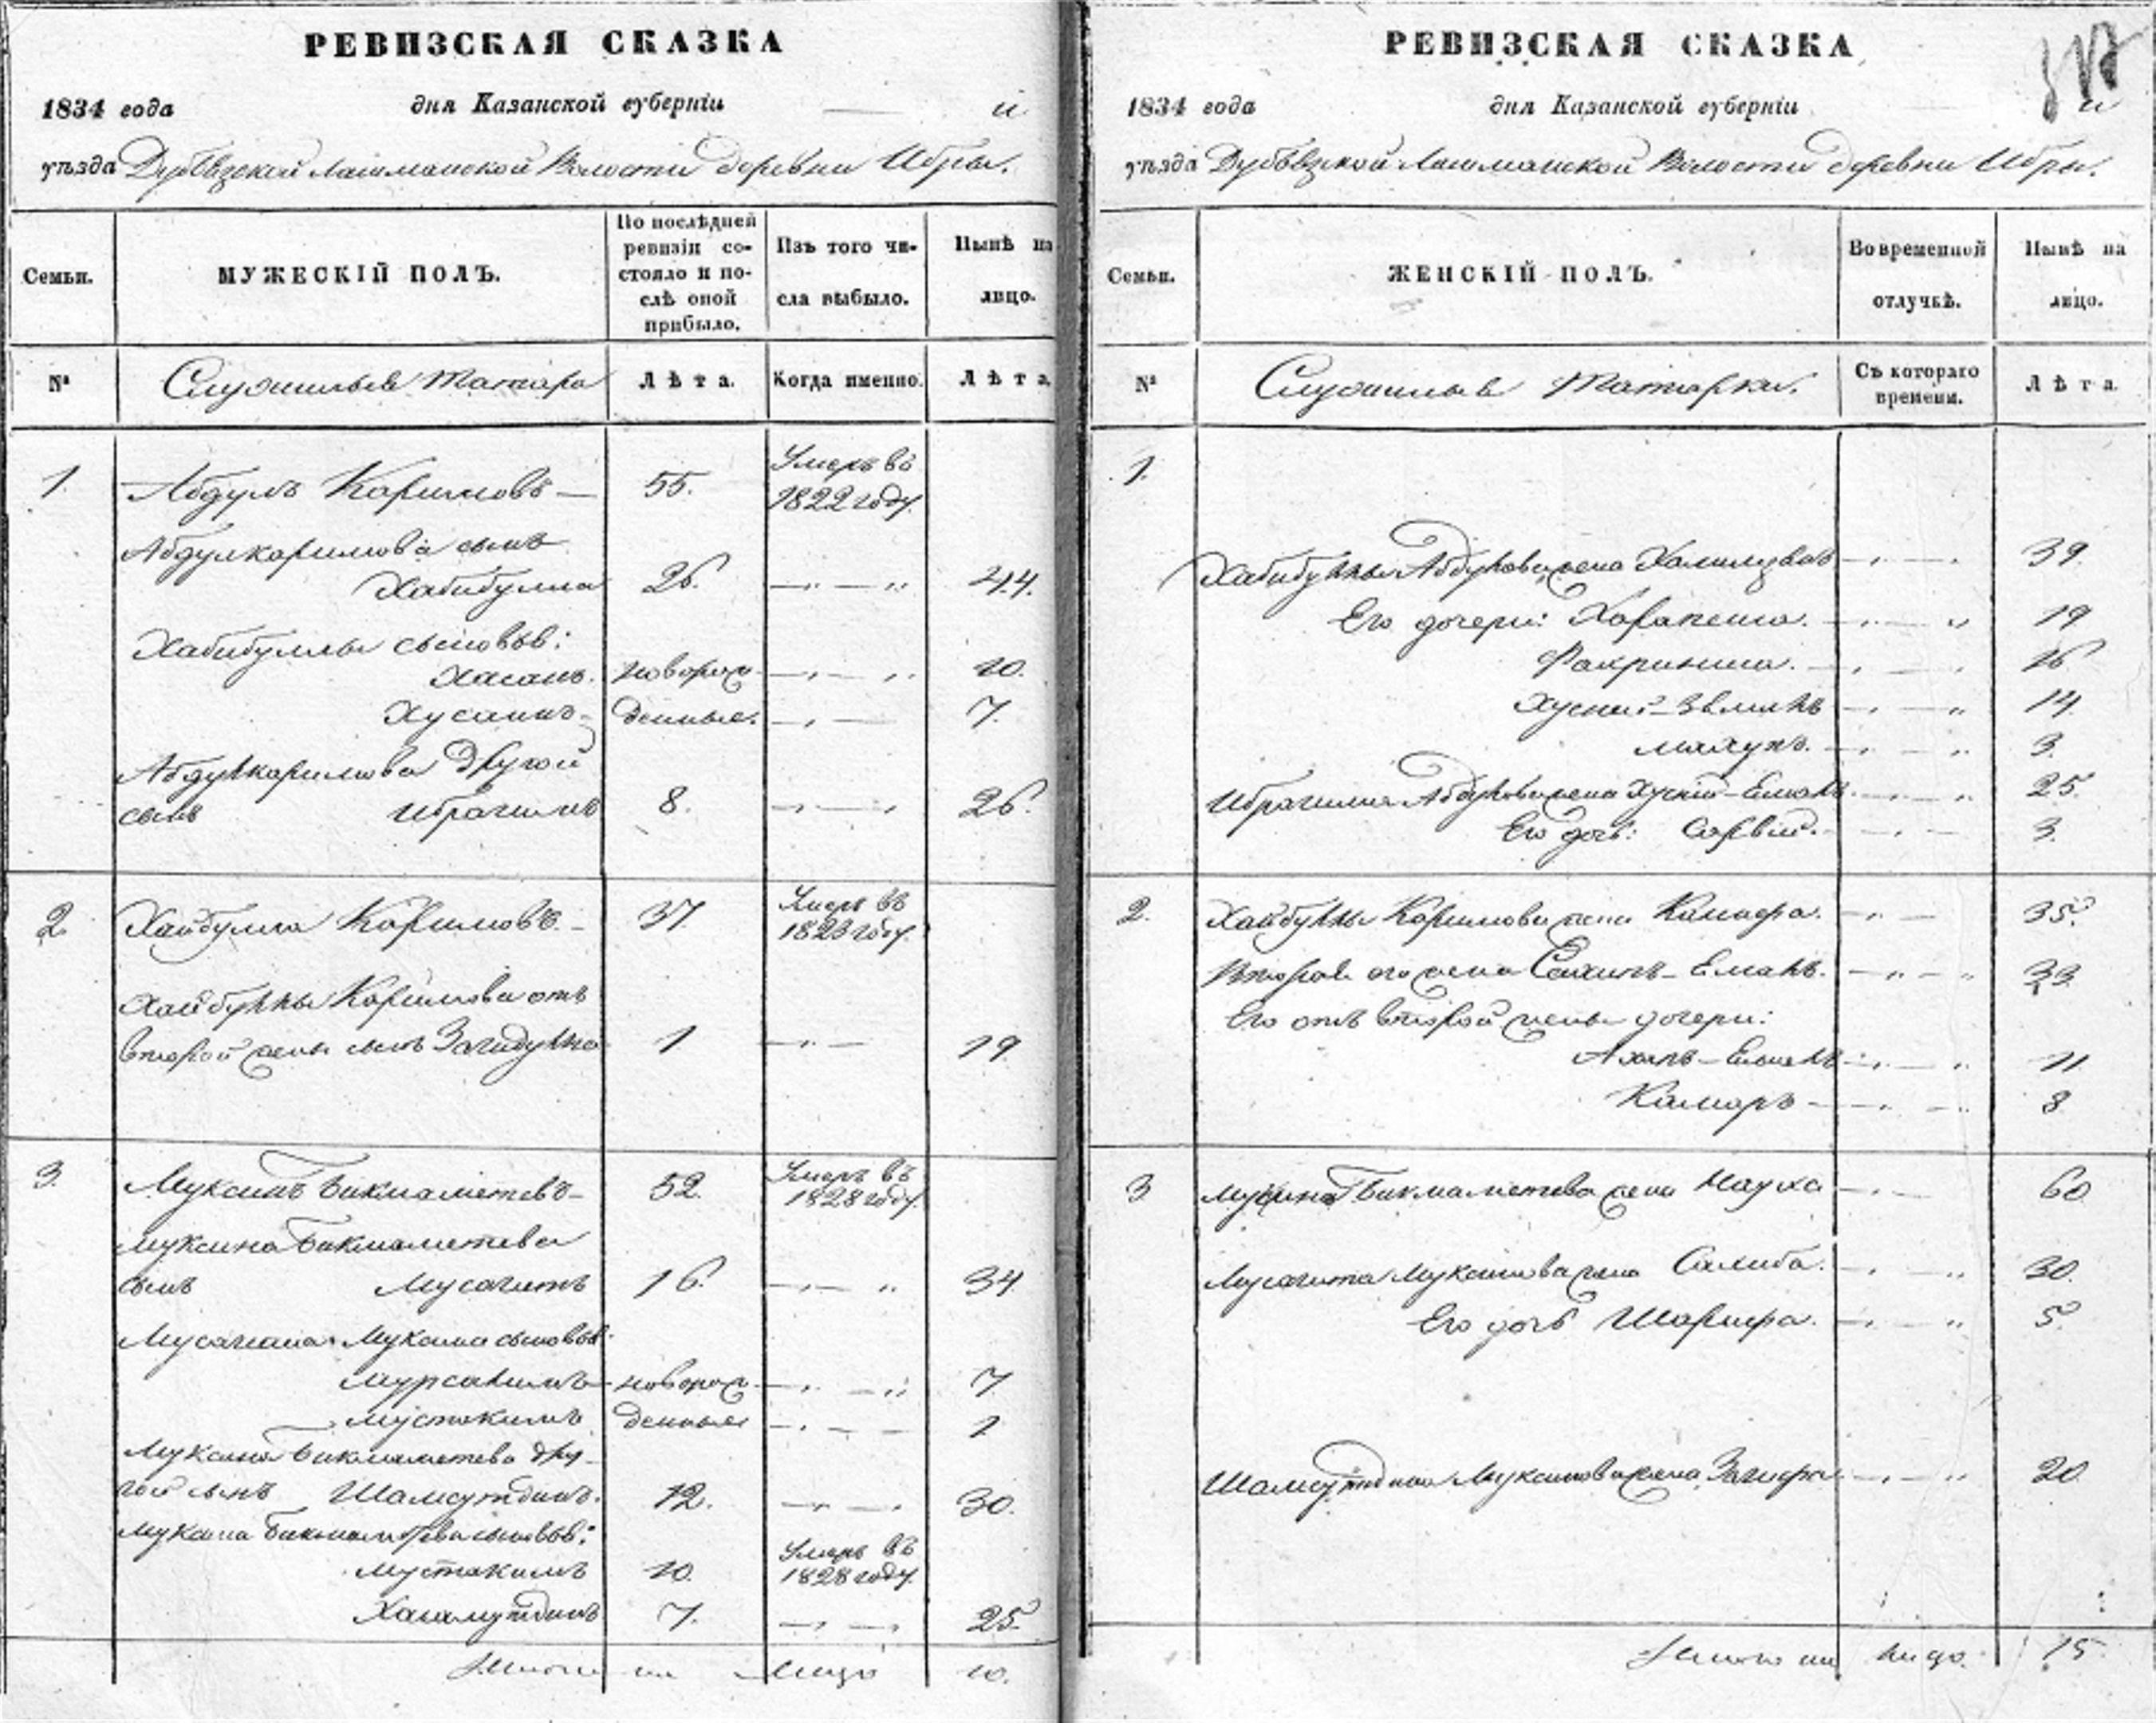 РЕВИЗСКАЯ СКАЗКА
1834 года дня Казанской губернiи й
уѣзда Лашманской Волости деревни Ибры.
Семьи. МУЖЕСКIЙ ПОЛЪ. По послѣдней ревизiи состояло и послѣ оной прибыло. Изъ того числа выбыло. Нынѣ на лицо.
№ Служилыя Татара Лѣта. Когда именно. Лѣта.
1. Абдулъ Каримовъ 55. Умеръ въ 1822 году.
Абдулкаримова сынъ
Хабибулла 26. 44.
Хабибуллы сыновья:
Хасанъ. новорож- 10.
Хусаинъ денные. 7.
Абдулкаримова другой
сынъ Ибрагимъ 8. 26.
2. Хайбулла Каримовъ 37. Умеръ въ 1823 году.
Хайбуллы Каримова отъ
второй жены сынъ Загидулла 1 19
3. Муксинъ Бикмаметевъ 52. Умеръ въ 1828 году.
Муксина Бикмаметева
сынъ Мусагитъ 16. 34
Мусагита сыновья
новорож- 7
Мустакимъ денные 1
Муксина Бикмаметева дру-
гой сынъ Шамсутдинъ. 12. 30.
Муксина Бикмаметева сыновья:
Мустакимъ 10. Умеръ въ 1828 году.
7. 25.
Итого на лицо 10.
РЕВИЗСКАЯ СКАЗКА
1834 года дня Казанской губернiи й
уѣзда Лашманской Волости деревни Ибры.
Семьи. ЖЕНСКIЙ ПОЛЪ. Во временной отлучкѣ. Нынѣ на лицо.
№ Служилыя Татарки. Съ котораго времени. Лѣта
1.
Хабибуллы Абдулова жена 39.
Его дочери: 19
16
14.
3.
Ибрагима Абдулова жена 25.
Его дочь: Сарвiй. 3.
2. Хайбуллы Каримова жена 35.
Вторая его жена 33.
Его отъ второй жены дочери:
11
Камаръ 8
3 Муксина Бикмаметева жена 60.
Мусагита Муксинова жена Салиба. 30.
Его дочь Шарифа. 5.
Шамсутдина Муксинова жена Загифа 20.
Итого на лицо. 15.